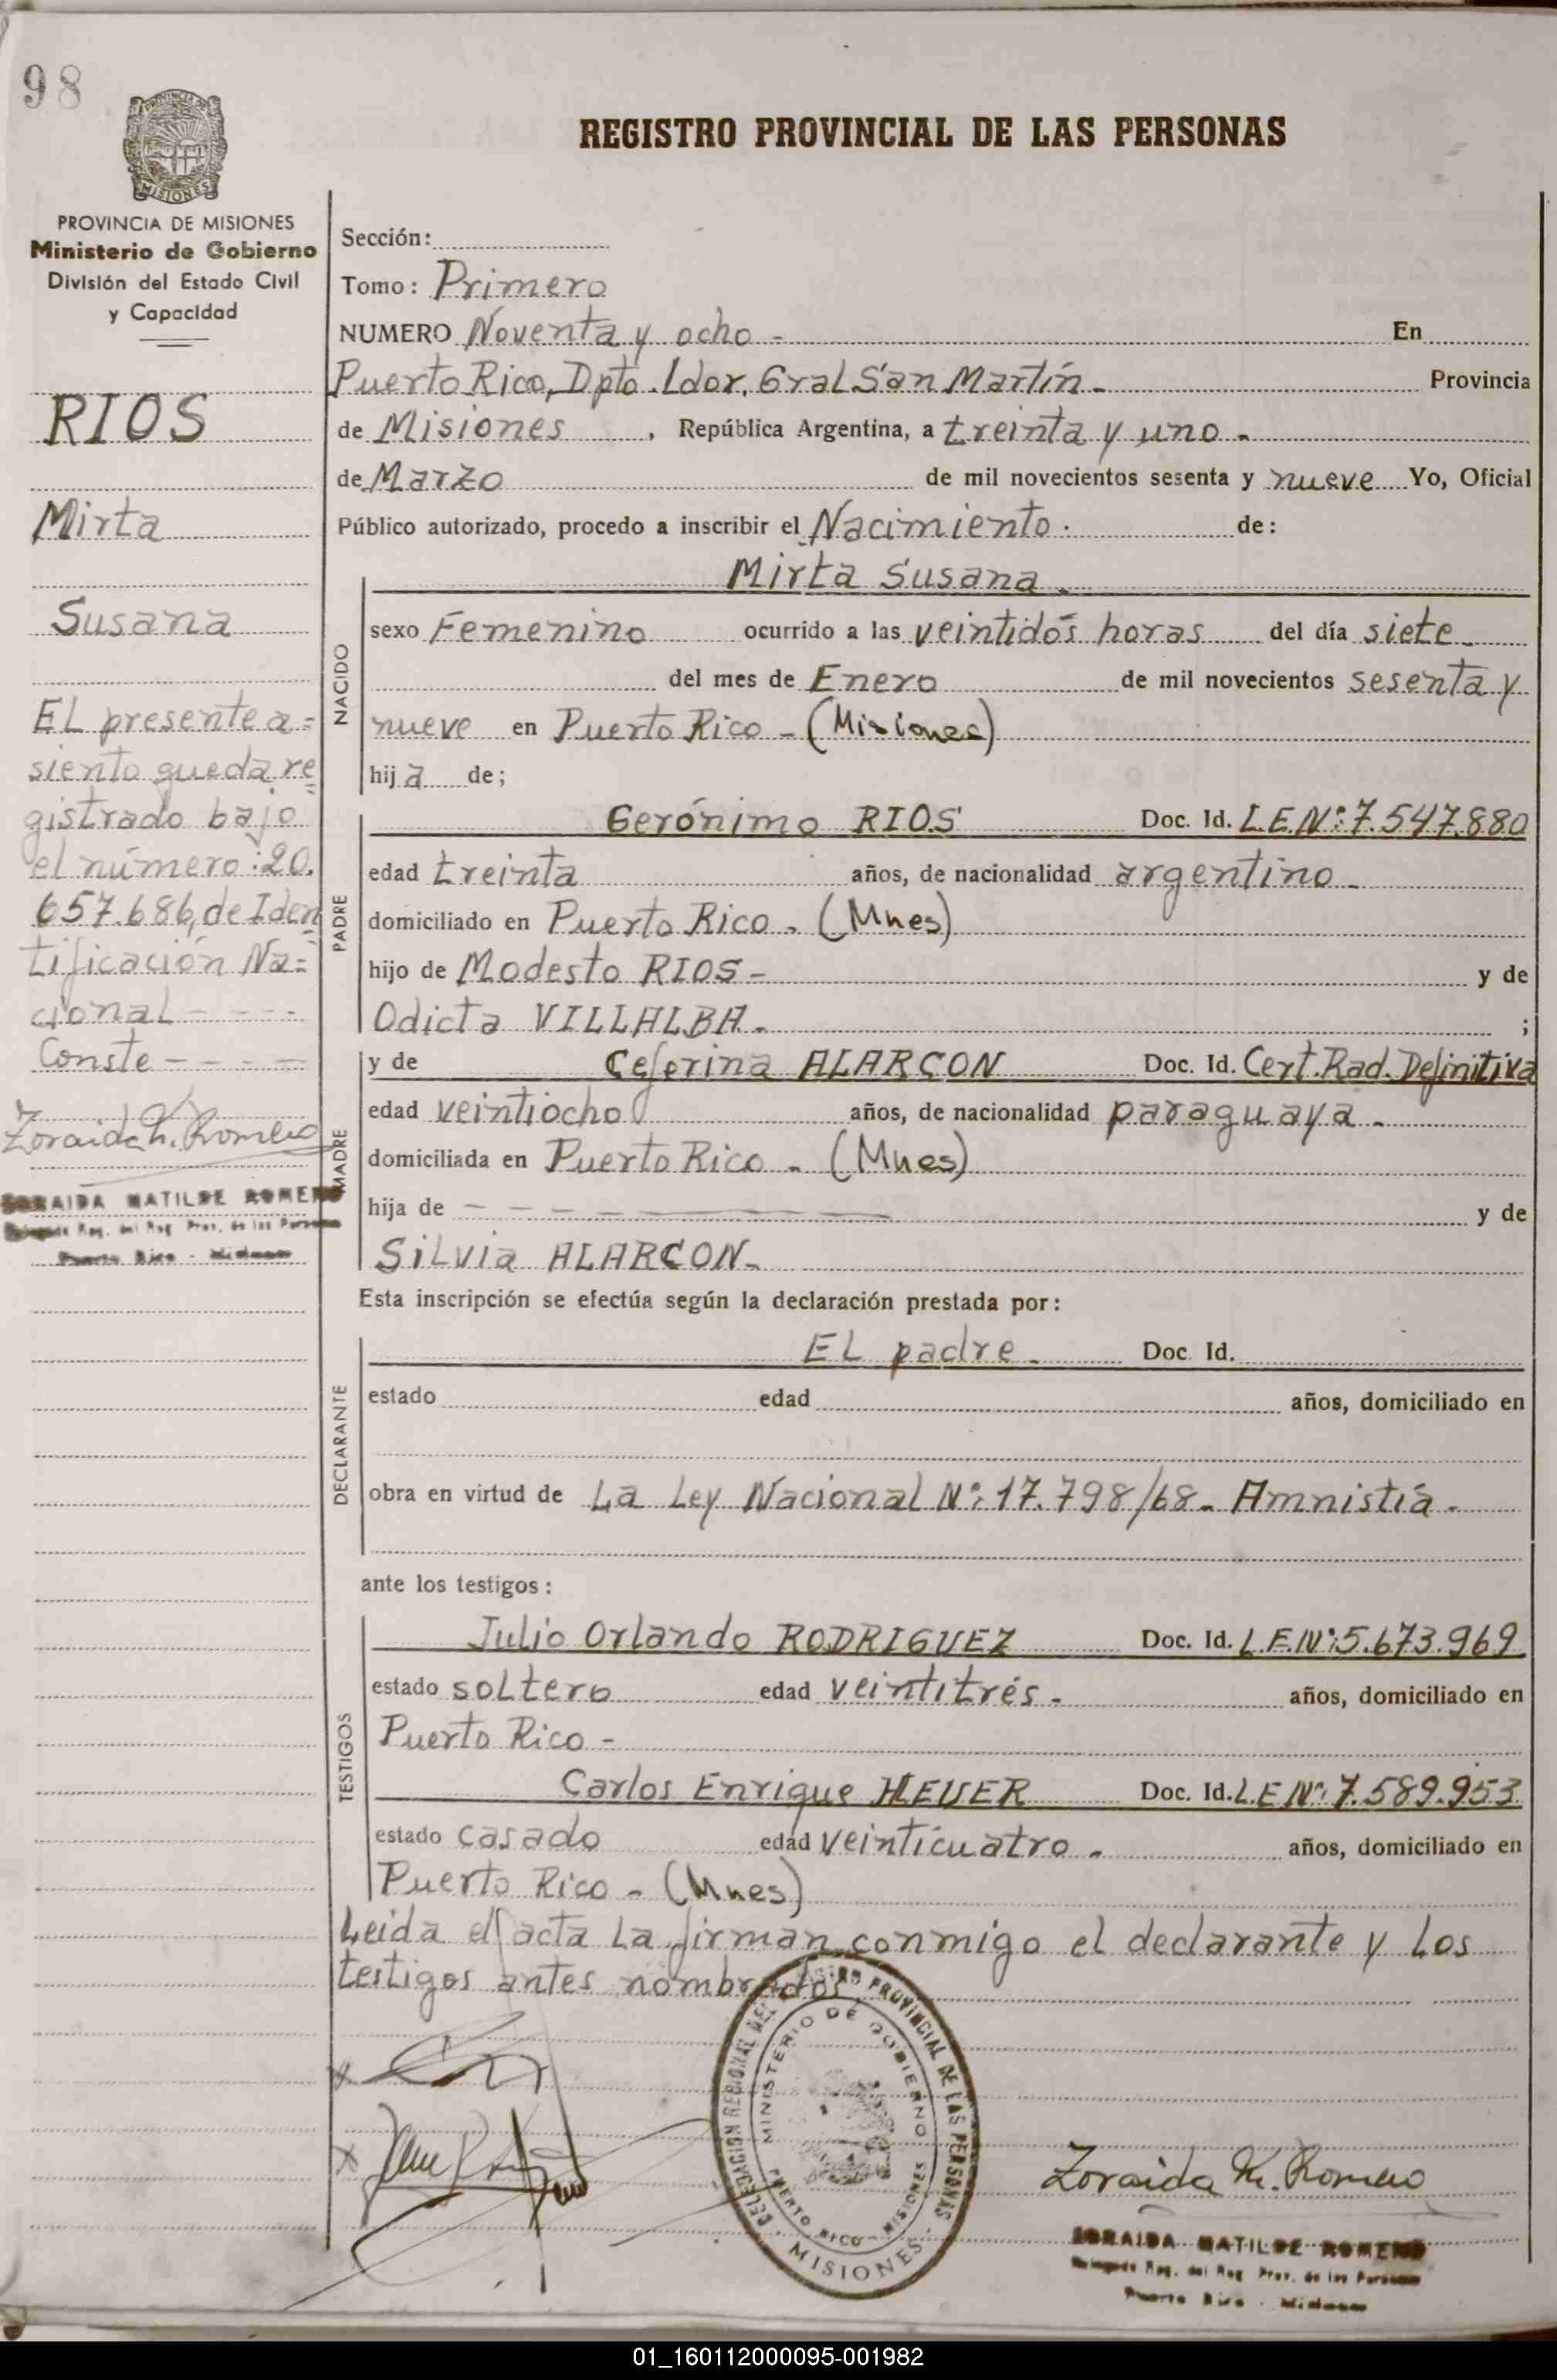 98
PROVINCIA DE
MISIONES
REGISTRO PROVINCIAL DE LAS PERSONAS
PROVINCIA DE MISIONES
Ministerio de Gobierno
División del Estado Civil
y Capacidad
RIOS
Mirta
Susana
EL presente a=
siento queda re
gistrado bajo
el número:20.
657.686, de Iden
tificación Na=
cional - - - -
Conste - - - -
Zoraida M. Romero
ZORAIDA MATILDE ROMERO
Delegada Reg. del Reg. Prov. de las Personas
Puerto Rico - Misiones
Sección:
Tomo: Primero
NUMERO Noventa y ocho - En
Puerto Rico, Dpto. Ldor. Gral San Martín - Provincia
de Misiones , República Argentina, a treinta y uno -
de Marzo de mil novecientos sesenta y nueve Yo, Oficial
Público autorizado, procedo a inscribir el Nacimiento. de:
NACIDO
Mirta Susana
sexo Femenino ocurrido a las veintidós horas del día siete
del mes de Enero de mil novecientos sesenta y
nueve en Puerto Rico - (Misiones)
hija de;
PADRE
Gerónimo RIOS Doc. Id. L.E.Nº:7.547.880
edad treinta años, de nacionalidad argentino -
domiciliado en Puerto Rico - (Mnes)
hijo de Modesto RIOS - y de
Odicta VILLALBA. ;
MADRE
y de Ceferina ALARCON Doc. Id. Cert. Rad. Definitiva
edad veintiocho años, de nacionalidad paraguaya -
domiciliada en Puerto Rico - (Mnes)
hija de - - - - - - - y de
Silvia ALARCON -
Esta inscripción se efectúa según la declaración prestada por:
DECLARANTE
EL padre - Doc. Id.
estado edad años, domiciliado en
obra en virtud de La Ley Nacional Nº:17.798/68 - Amnistía -
ante los testigos:
TESTIGOS
Julio Orlando RODRIGUEZ Doc. Id. L.E.Nº:5.673.969
estado soltero edad veintitrés - años, domiciliado en
Puerto Rico -
Carlos Enrique HEUER Doc. Id. L.E Nº:7.589.953
estado casado edad veinticuatro - años, domiciliado en
Puerto Rico - (Mnes)
Leida el acta La firman conmigo el declarante y Los
testigos antes nombrados
DELEGACION REGIONAL DEL REGISTRO PROVINCIAL DE LAS PERSONAS
MINISTERIO DE GOBIERNO
PUERTO RICO - MISIONES
MISIONES
Zoraida M. Romero
ZORAIDA MATILDE ROMERO
Delegada Reg. del Reg. Prov. de las Personas
Puerto Rico - Misiones
01_160112000095-001982